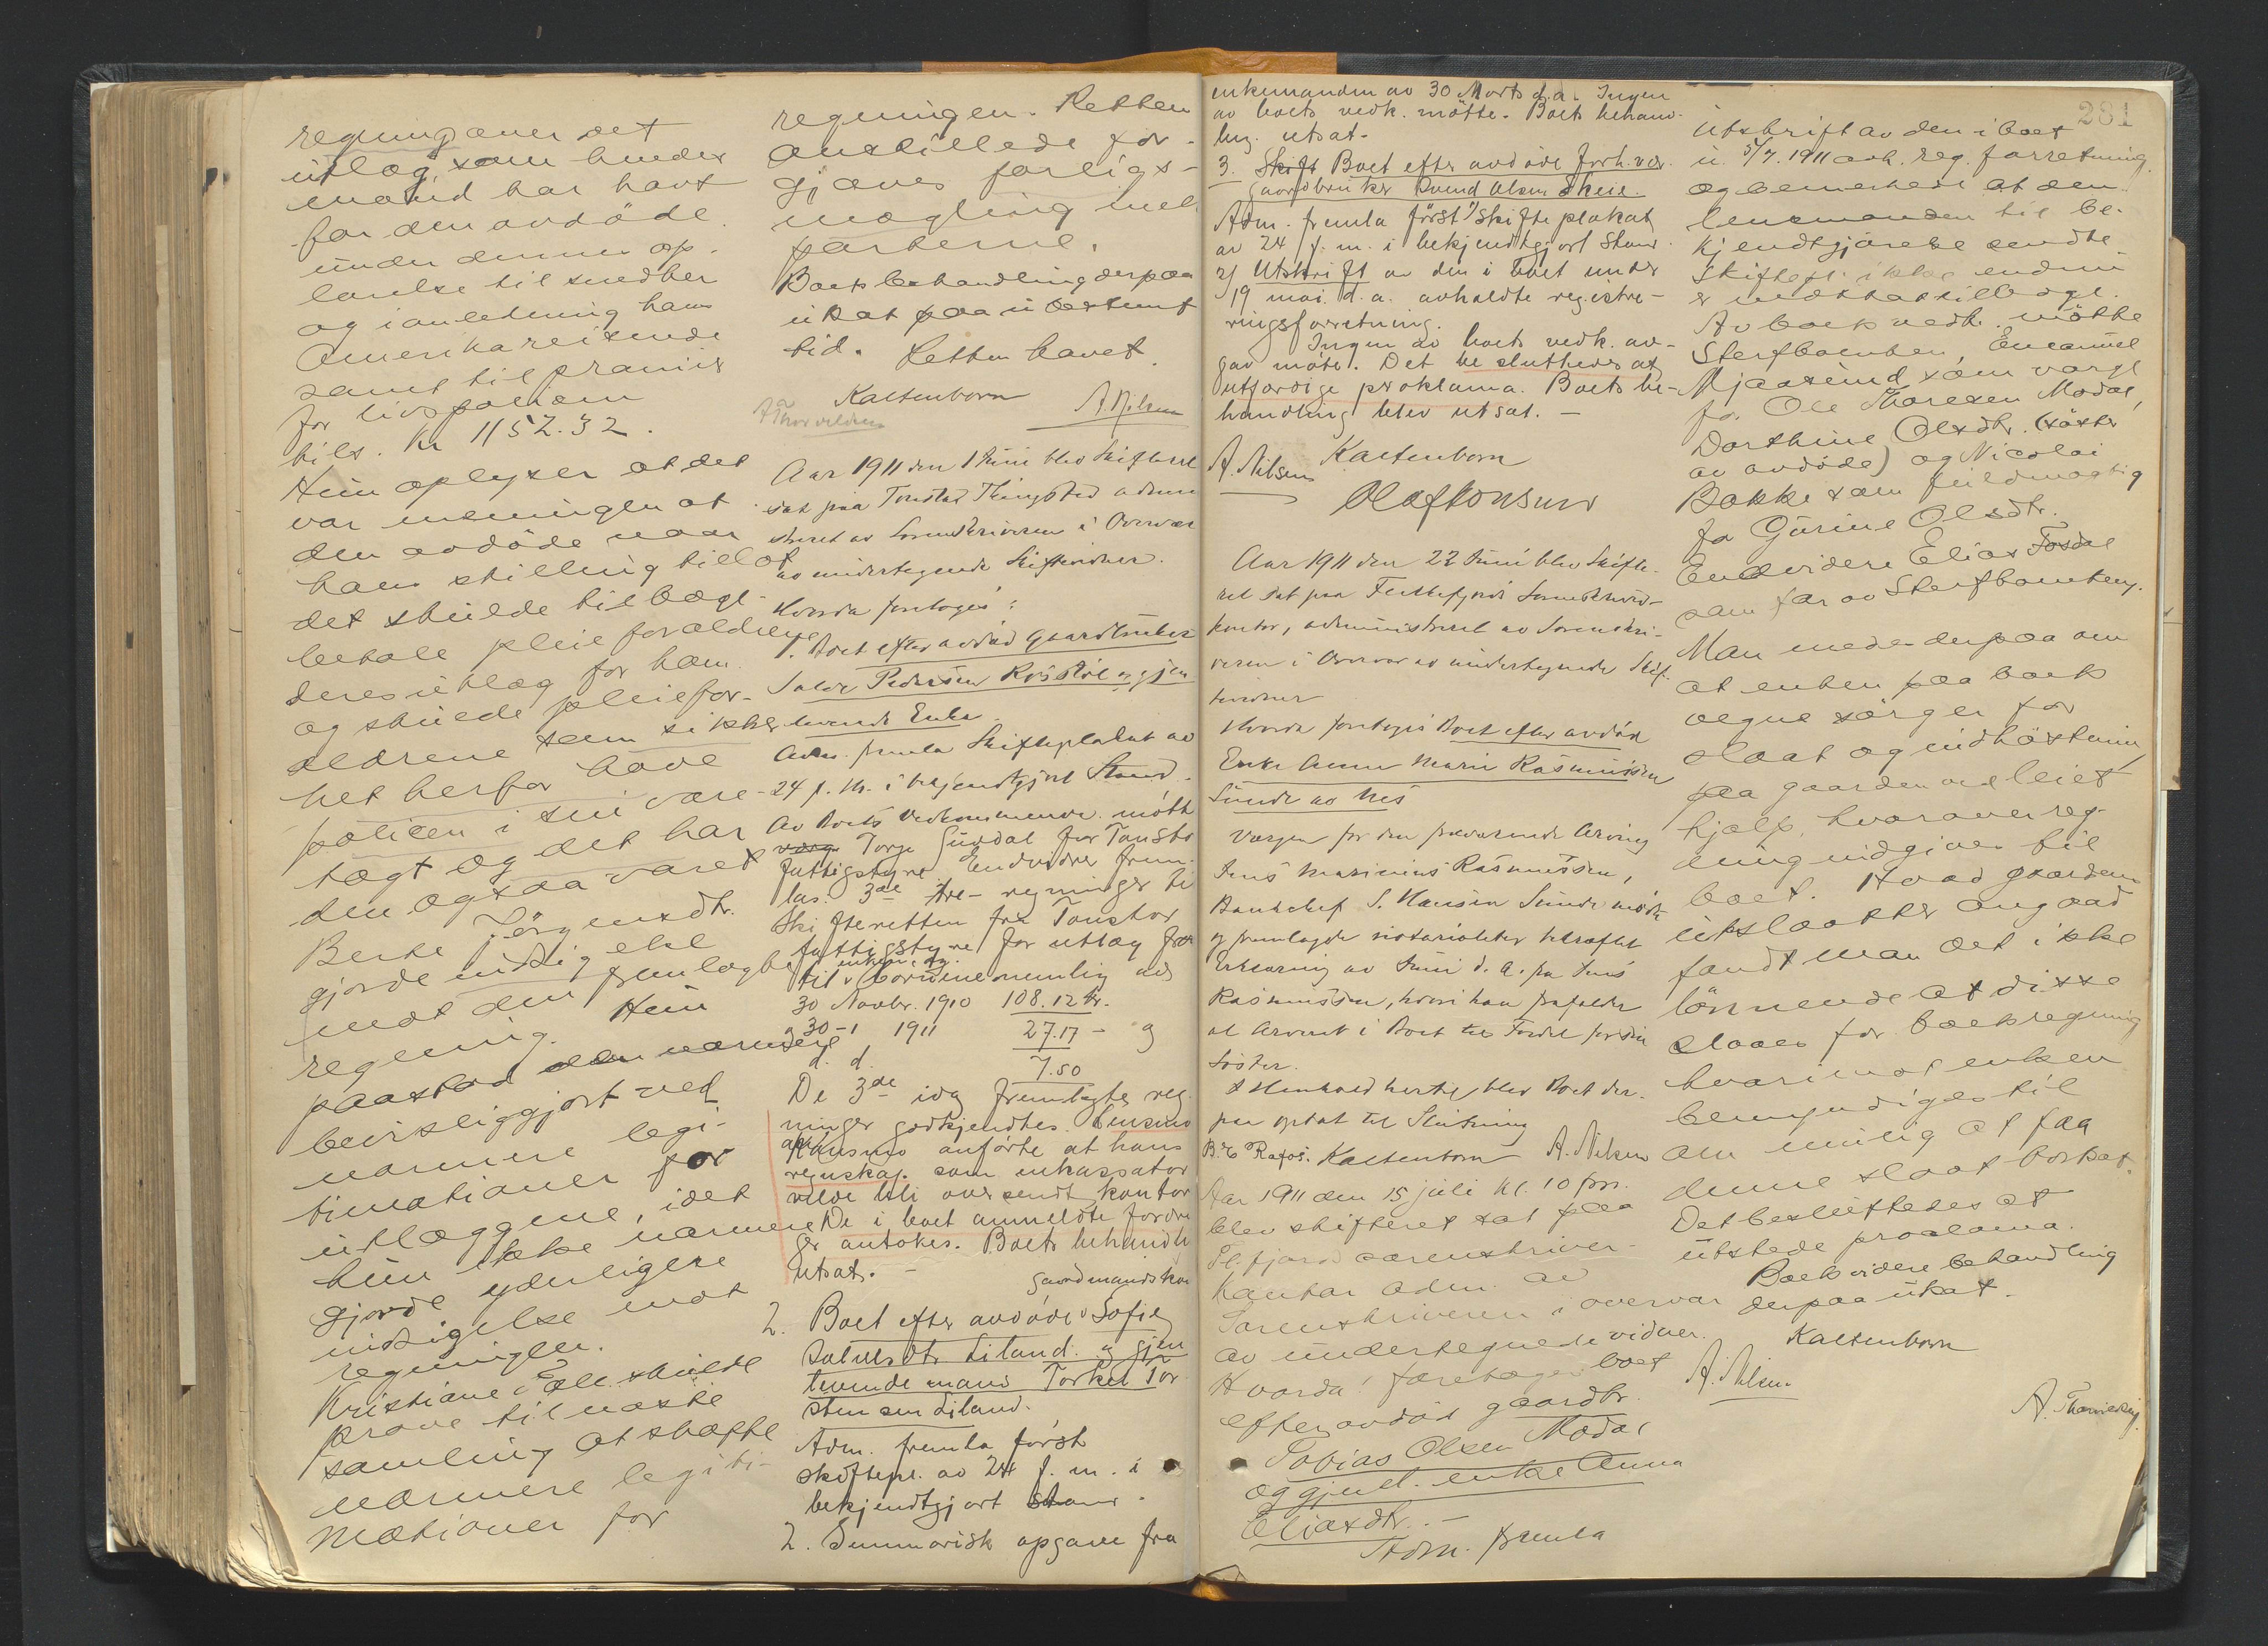 regning over det
utlæg, som hendes
mand har havt
for den avdöde
under dennes op-
förelse til smedlær
og i anledning hans
Amerikareisende
samt til præmier
for livspolicen
tils. Kr 1152.32.
Hun oplyser at det
var meningen at
den avdöde naar
hans stilling tillot
det skulde tilbage-
betale pleieforældrene
deres utlæg for ham
og skulde pleiefor-
ældrene som sikker
het herfor have
policen i sin vare-
tægt og det har
den ogsaa været
Berte Jörgensdtr.
gjorde indsigelse
mot den fremlagte
regning. Hun
paastod
bevisliggjort ved
nærmere legi-
timationer for
utlæggene, idet
hun ikke nærmere
gjorde yderligere
indsigelse mot
regningen.
Kristiane skulde
pröve til næste
samling at skaffe
nærmere legiti-
mationer for
regningen. Retten
anstillede for-
gjæves forligs-
mægling mel.
parterne.
Boets behandling derpaa
utsat paa ubestemt
tid. Retten hævet.
Kaltenborn
A. Nilsen
A Thorvaldsen
Aar 1911 den 1 Juni blev Skifteret
sat paa Tonstad Thingsted admini
streret av Sorenskriveren i Overvær
av undertegnede Skiftevidner.
Hvorda foretoges:
1. Boet efter avdöd Gaardbruker
Salve Pedersen Kvistöl og gjen
levende Enke.
Adm. fremla Skifteplakat av
24 f. M. i bekjendtgjort Stand.
Av Boets Vedkommende mötte
Torje Guddal for Tonstø
fattigstyre. Endvidere frem-
las. 3de tre- regninger til
Skifteretten fra Tonstad
fattigstyre for utlæg for
til enken og börnene nemlig ad
30 Novbr. 1910 108.12 kr.
30-1 1911 27.17 - og
d. d. 7.50
De 3de idag fremlagte reg
ninger godkjendtes. Lensmd
Hansmo anförte at hans
regnskap som inkassator
vilde bli oversendt kontor
De i boet anmeldte fordrin
ger antokes. Boets behandl
utsat. -
gaardmandskon
2. Boet efter avdöde Sofie
Salvesdtr. Liland og gjen
levende mand Torkel Tor
stensen Liland.
Adm. fremla först
skiftepl. av 24 f. m. i
bekjendtgjort stand.
2. Summarisk opgave fra
281
enkemanden av 30 Marts d.a. Ingen
av boets vedk. mötte. Boets behand-
ling utsat.
3. Skift Boet efter avdöde forh.vær.
gaardbruker Svend Olsen Skeie.
Adm. fremla först 1/ skifteplakat
av 24 f. m. i bekjendtgjort stand.
2/ Utskrift av den i boet under
19 mai d. a. avholdte registre-
ringsforretning.
Ingen av boets vedk. av-
gav möte. Det besluttedes at
utfærdige proklama. Boets be-
handling blev utsat. -
Kaltenborn
A. Nilsen
Olaf Tonsurd
Aar 1911 den 22 Juni blev Skifte-
ret sat paa Flekkefjord Sorenskriver-
kontor, administreret av Sorenskri-
veren i Overvær av undertegnede Skif-
tevidner
Hvorda foretoges Boet efter avdöd
Enke Anne Marie Rasmussen
Sunde av Nes
Vergen for den fraværende Arving
Jens Marinius Rasmussen,
Bankchef S. Hansen Sunde mötte
og fremlagde notarialiter bekræftet
Erklæring av Juni d. A. fra Jens
Rasmussen, hvori han frafalder
al Arveret i Boet til Fordel for sin
Söster.
I Henhold hertil blev Boet der-
paa optat til Slutning
B. T Rafos. Kaltenborn A. Nilsen
Aar 1911 den 15 juli kl. 10 fm.
blev skifteret sat paa
Fl.fjord sorenskriver-
kontor adm. av
Sorenskriveren i overvær
av undertegnede vidner.
Hvorda! foretoges boet
efter avdöd gaardbr.
Tobias Olsen Modal
og gjenl. enke Anna
Eliasdtr. -
Adm. fremla
Utskrift av den i boet
u. 5/7. 1911 avh. reg. forretning
og bemerkede at den
lensmanden til be-
kjendtgjörelse sendte
skiftepl. ikke endnu
er mottat tilbage.
Av boets vedk. mötte
Sterfboenken, Emanuel
Mjaasund som verge
for Ole Tharesen Modal,
Dorthine Olsdtr. (söster
av avdöde) og Nicolai
Bakke som fuldmægtig
for Gurine Olsdtr.
Endvidere Elias Josdal
som far av Sterfboenken.
Man enedes derpaa om
at enken paa boets
vegne sörger for
slaat og indhöstning
paa gaarden ved leiet
hjælp, hvorover reg-
ning indgives til
boet. Hvad gaardens
utslaatter angaad
fandt man det ikke
lönnende at disse
slaaes for boets regning
hvorimot enken
bemyndiges til
om mulig at faa
denne slaat bortsat.
Det besluttedes at
utstede proclama.
Boets videre behandling
derpaa utsat.
Kaltenborn
A. Nilsen
A. Thorvaldsen